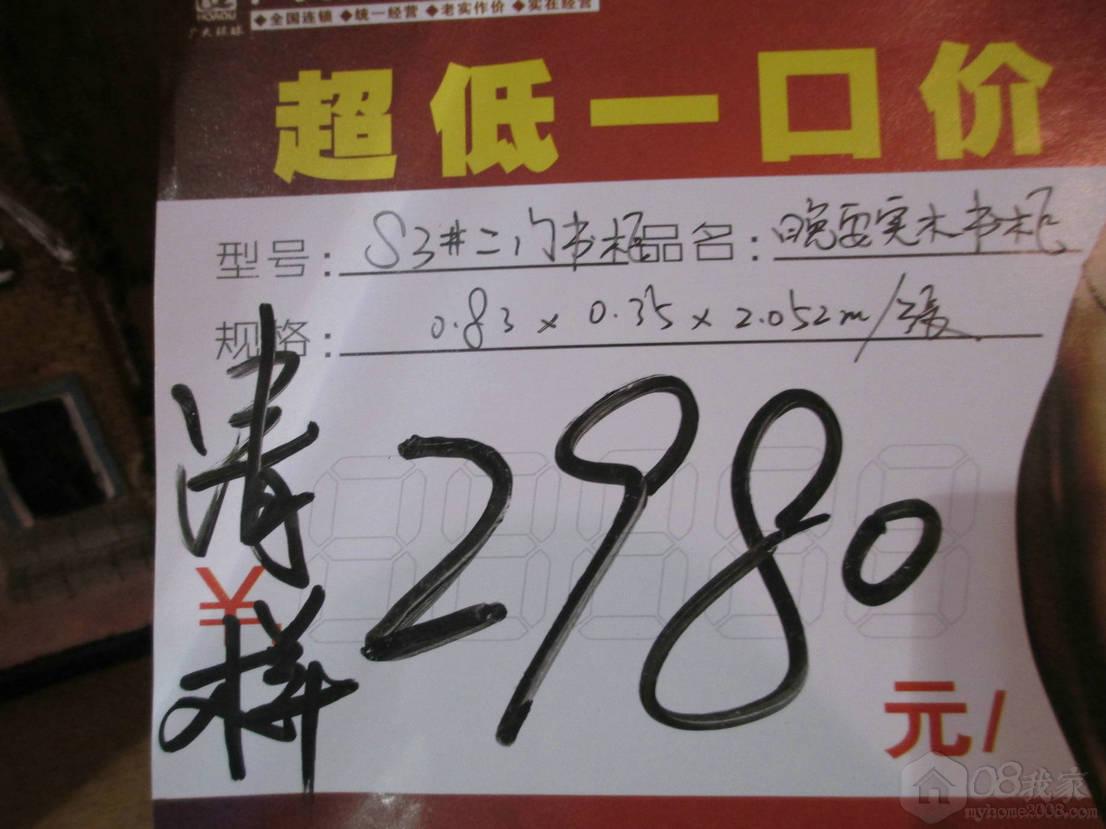 HOADU
广大环球
◆全国连锁 ◆统一经营 ◆老实作价 ◆实在经营
超低一口价
型号: S3#二门书柜 品名: 实木书柜
规格: 0.83 x 0.35 x 2.052m/张
清样
¥ 2980
元/
08我家
myhome2008.com